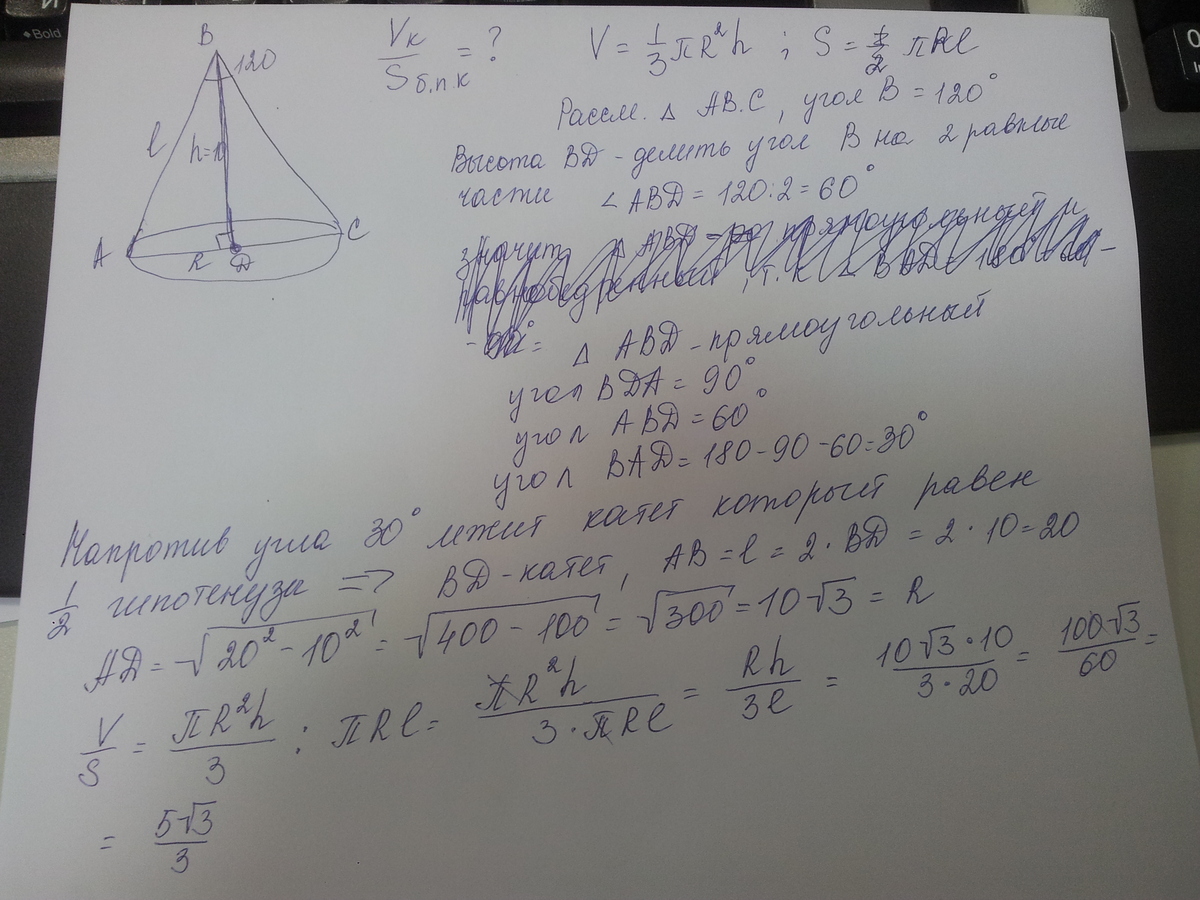 Bold
B
120
l
h=10
A
R
D
C
Vк / Sб.п.к = ?
V = 1/3 πR²h ; S = πRl
Рассм. △ AB.C, угол B = 120°
Высота BD - делить угол B на 2 равные
части ∠ABD = 120:2 = 60°
значит △ ABD - прямоугольный и
равнобедренный, т.к ∠ BAD = 180
△ ABD - прямоугольный
угол BDA = 90°
угол ABD = 60°
угол BAD = 180-90-60=30°
Напротив угла 30° лежит катет которыет равен
1/2 гипотенуза => BD-катет, AB = l = 2·BD = 2·10=20
AD = √20²-10² = √400-100 = √300 = 10√3 = R
V/S = πR²h/3 : πRl = πR²h/3·πRl = Rh/3l = 10√3·10/3·20 = 100√3/60 =
= 5√3/3